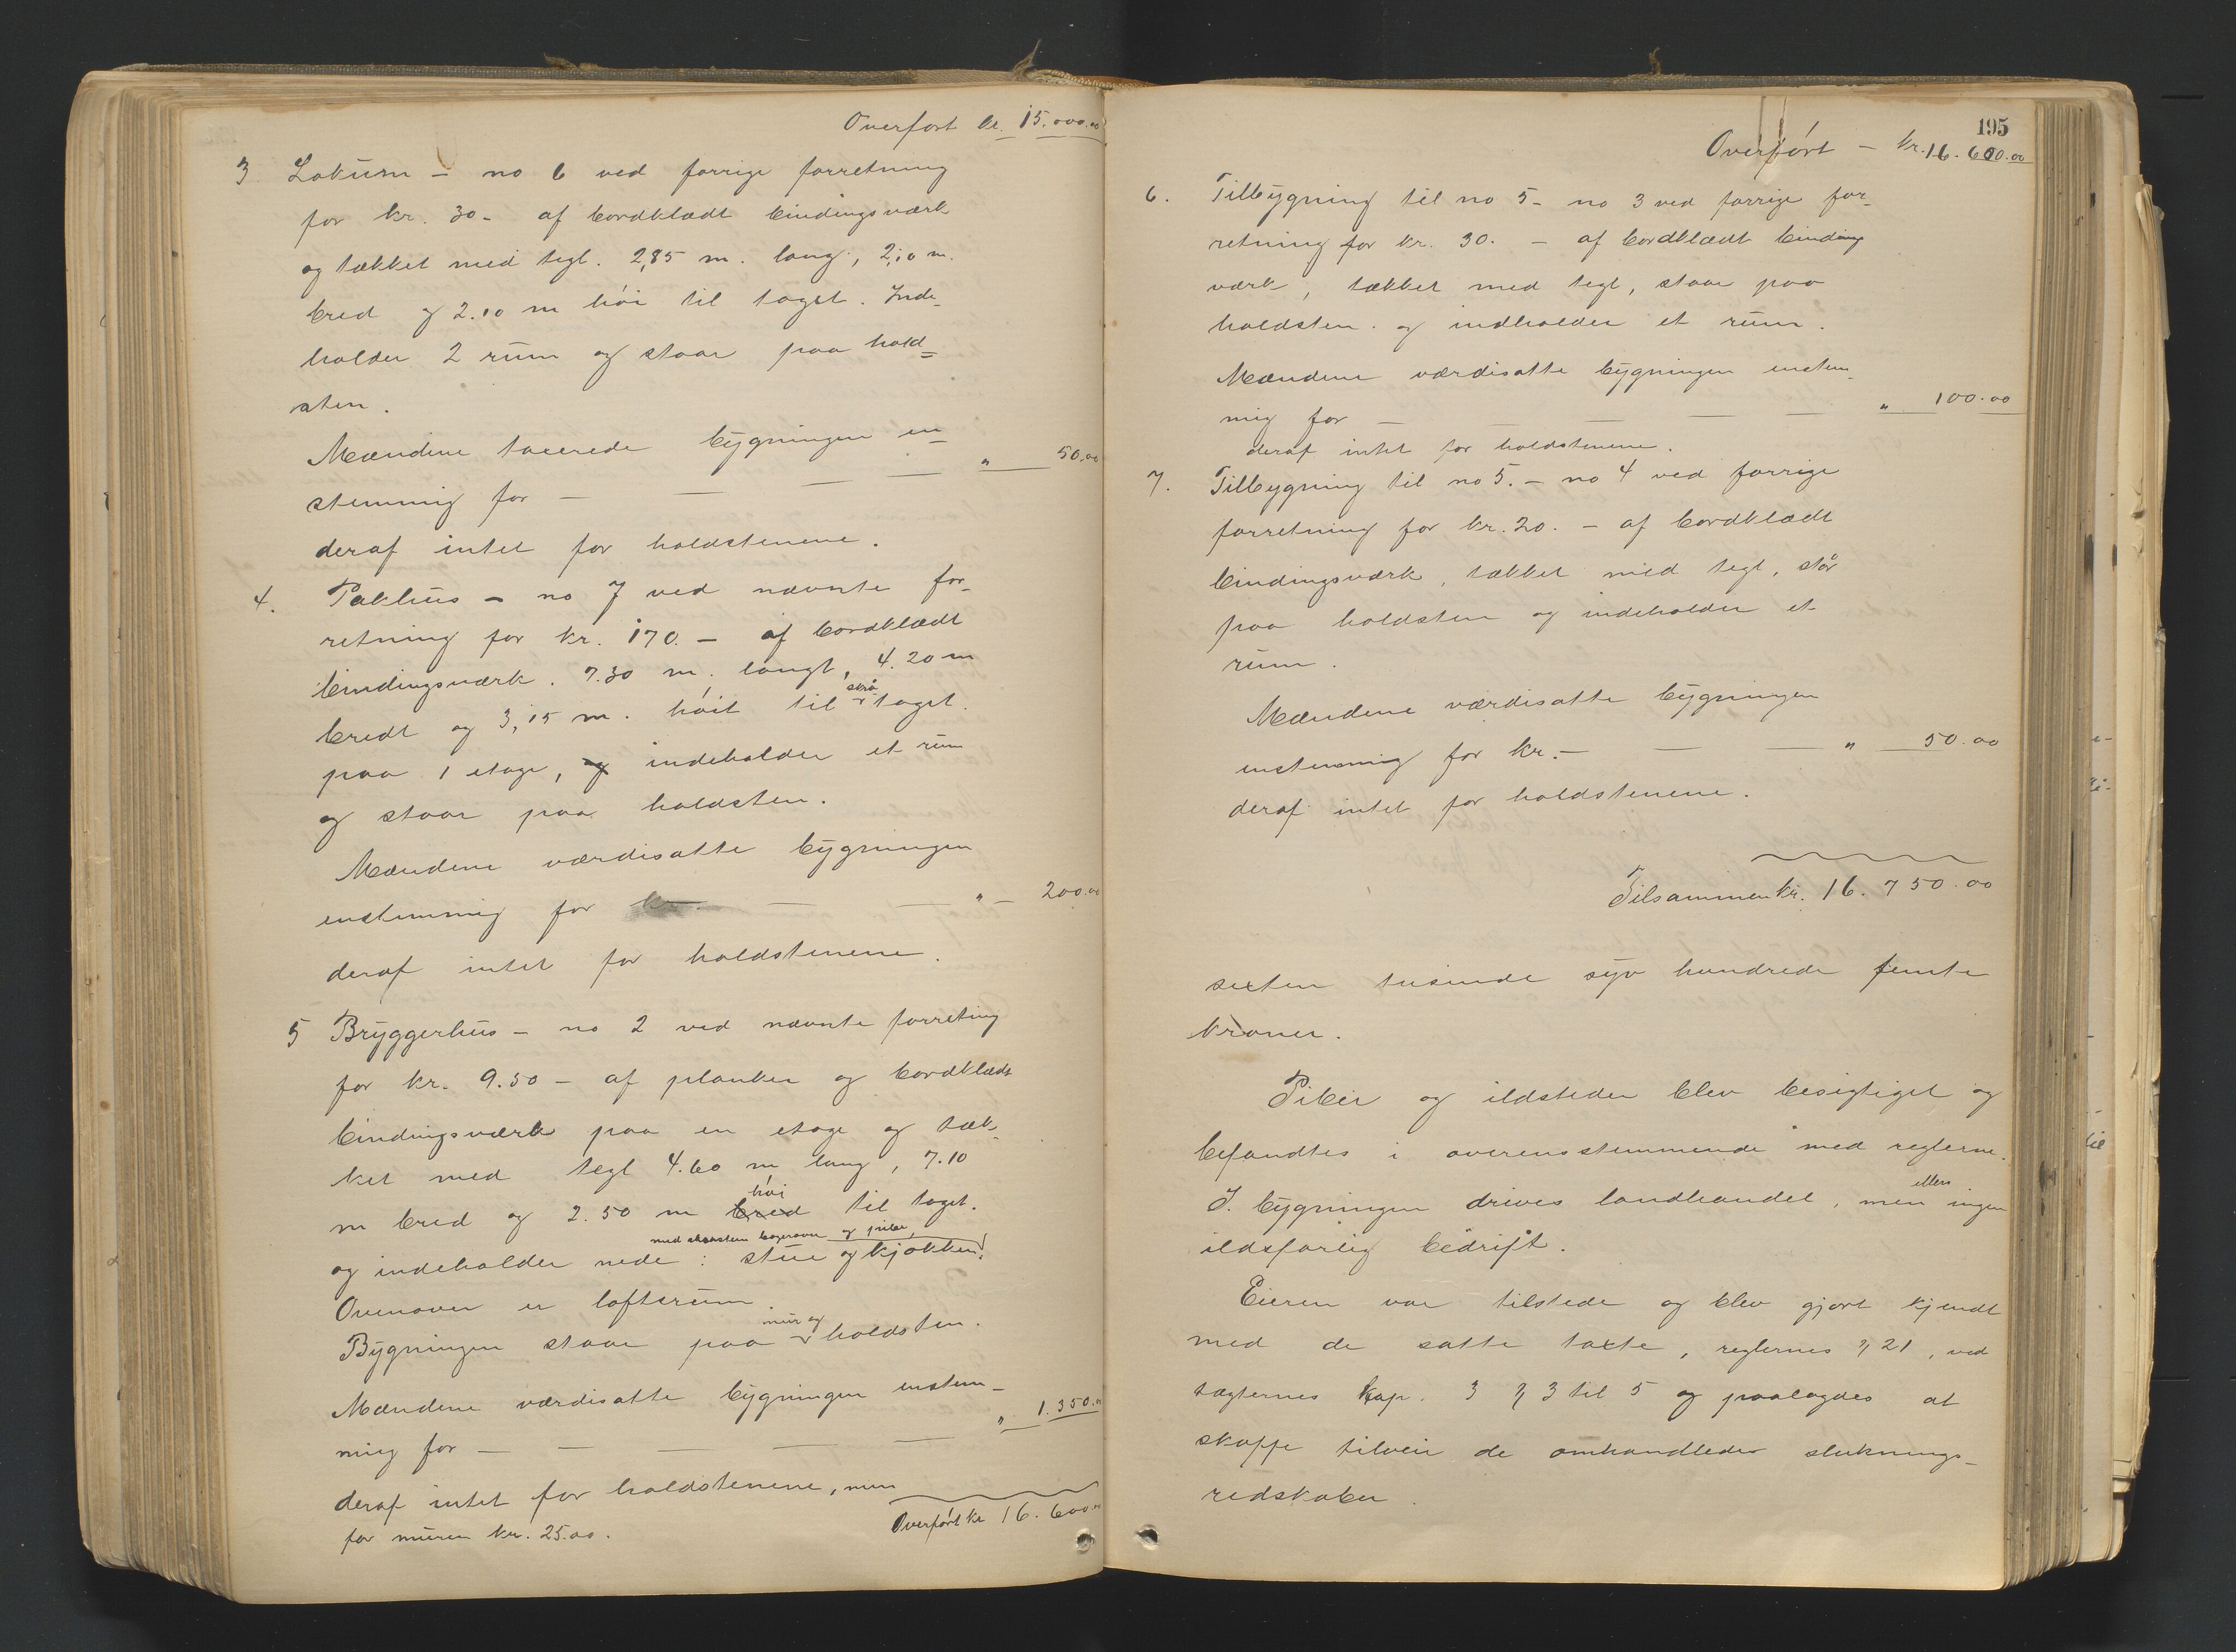 Overført kr. 15.000.00
3 Lokum – no 6 ved forrige forretning
for kr. 30 – af bordklædt bindingsværk
og tækket med tegl. 2,85 m. lang, 2,10 m.
bred og 2.10 m høi til taget. Inde-
holder 2 rum og staar paa hold=
sten.
Mændene taxerede bygningen en=
stemmig for — — — — " 50.00
deraf intet for holdstenene.
4. Pakhus – no 7 ved nævnte for-
retning for kr. 170. – af bordklædt
bindingsværk. 7.30 m. langt, 4.20 m
bredt og 3,15 m. høit til skrå taget.
paa 1 etage, og indeholder et rum
og staar paa holdsten.
Mændene værdisatte bygningen
enstemmig for kr. — — " – 200.00
deraf intet for holdstenene.
5 Bryggerhus – no 2 ved nævnte forreting
for kr. 9.50 – af planker og bordklædt
bindingsværk paa en etage og tæk-
ket med tegl 4.60 m lang, 7.10
m bred og 2.50 m bred høi til taget.
med skorsten bagerovn og pibe,
og indeholder nede: stue og kjøkken.
Ovenover er loftsrum.
Bygningen staar paa mur og holdsten.
Mændene værdisatte bygningen enstem-
mig for — — — — — " 1.350.00
deraf intet for holdstenene, men
for muren kr. 25.00.
Overført kr 16.600.00
195
Overført – kr. 16.600.00
6. Tilbygning til no 5 – no 3 ved forrige for-
retning for kr. 30. – af bordklædt bindings
værk, tækket med tegl, staar paa
holdsten og indholder et rum.
Mændene værdisatte bygningen enstem-
mig for — — — — " 100.00
deraf intet for holdstenene.
7. Tilbygning til no 5. – no 4 ved forrige
forretning for kr. 20. – af bordklædt
bindingsværk, tækket med tegl, står
paa holdsten og indeholder et
rum.
Mændene værdisatte bygningen
enstemmig for kr. – — — " 50.00
deraf intet for holdstenene.
Tilsammen kr. 16.750.00
sexten tusinde syv hundrede femti
kroner.
Piber og ildsteder blev besigtiget og
befandtes i overensstemmende med reglerne.
I. bygningen drives landhandel, men ellers ingen
ildsfarlig bedrift.
Eieren var tilstede og blev gjort kjendt
med de satte taxte, reglernes § 21, ved
tægternes kap. 3 § 3 til 5 og paalagdes at
skaffe tilveie de omhandlede sluknings-
redskaber.